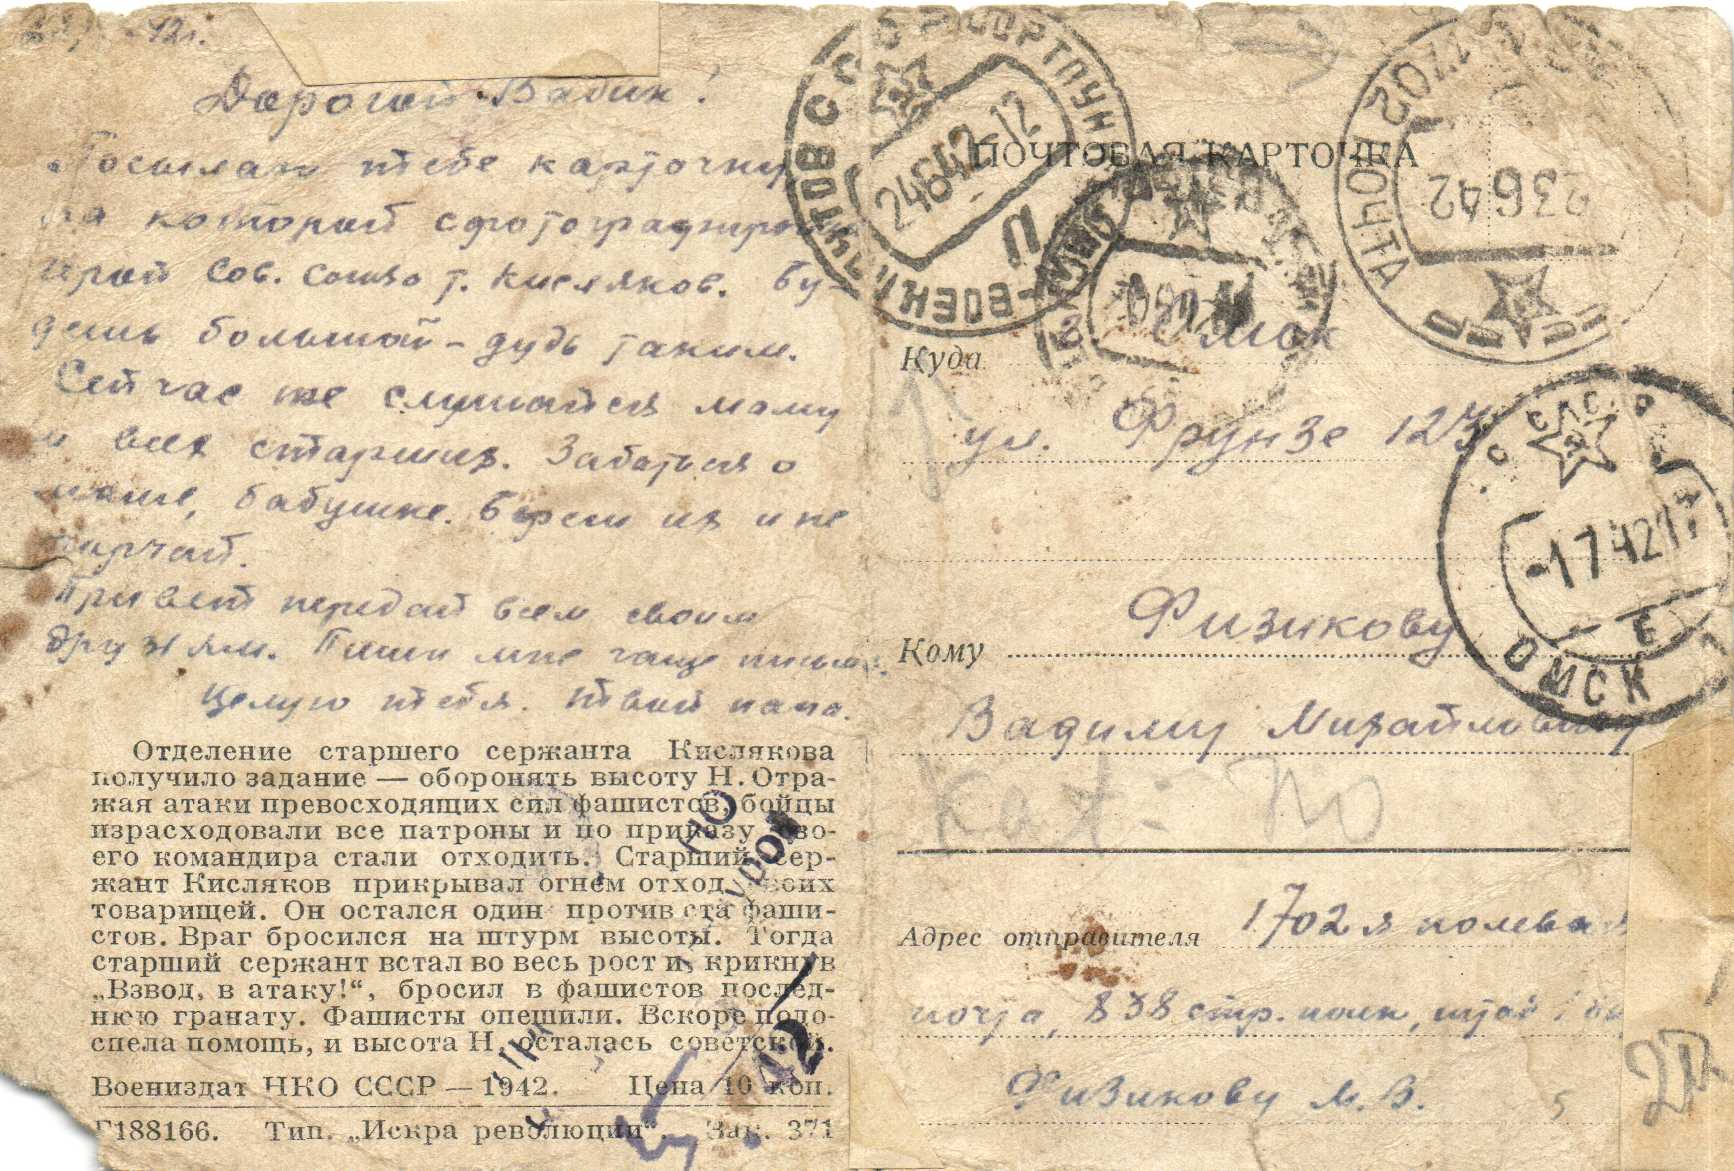 42г.
Дорогой Вадик!
Посылаю тебе карточку
на которой сфотографиро
герой Сов. Союза т. Кисляков. Бу-
дешь большой – будь таким.
Сейчас же слушайся маму
и всех старших. Заботься о
маме, бабушке. Береги их и не
огорчай.
Привет передай всем своим
друзьям. Пиши мне чаще письма.
Целую тебя. Твой папа.
Отделение старшего сержанта Кислякова
получило задание — оборонять высоту Н. Отра-
жая атаки превосходящих сил фашистов, бойцы
израсходовали все патроны и по приказу сво-
его командира стали отходить. Старший сер-
жант Кисляков прикрывал огнем отход своих
товарищей. Он остался один против ста фаши-
стов. Враг бросился на штурм высоты. Тогда
старший сержант встал во весь рост и, крикнув
„Взвод, в атаку!“, бросил в фашистов послед-
нюю гранату. Фашисты опешили. Вскоре подо-
спела помощь, и высота Н. осталась советской.
Воениздат НКО СССР — 1942. Цена 10 коп.
Г188166. Тип. „Искра революции“. Зак. 371
42
ПОЧТОВАЯ КАРТОЧКА
СССР
24 6 42 12
ПОЧТА 1702
23 6 42
Куда Омск
ул. Фрунзе 123
СССР
-1 7 42 17
ОМСК
Кому Физикову
Вадиму Михайловичу
Адрес отправителя 1702я полевая
почта, 838 стр. полк, штаб 1
Физикову М. В.